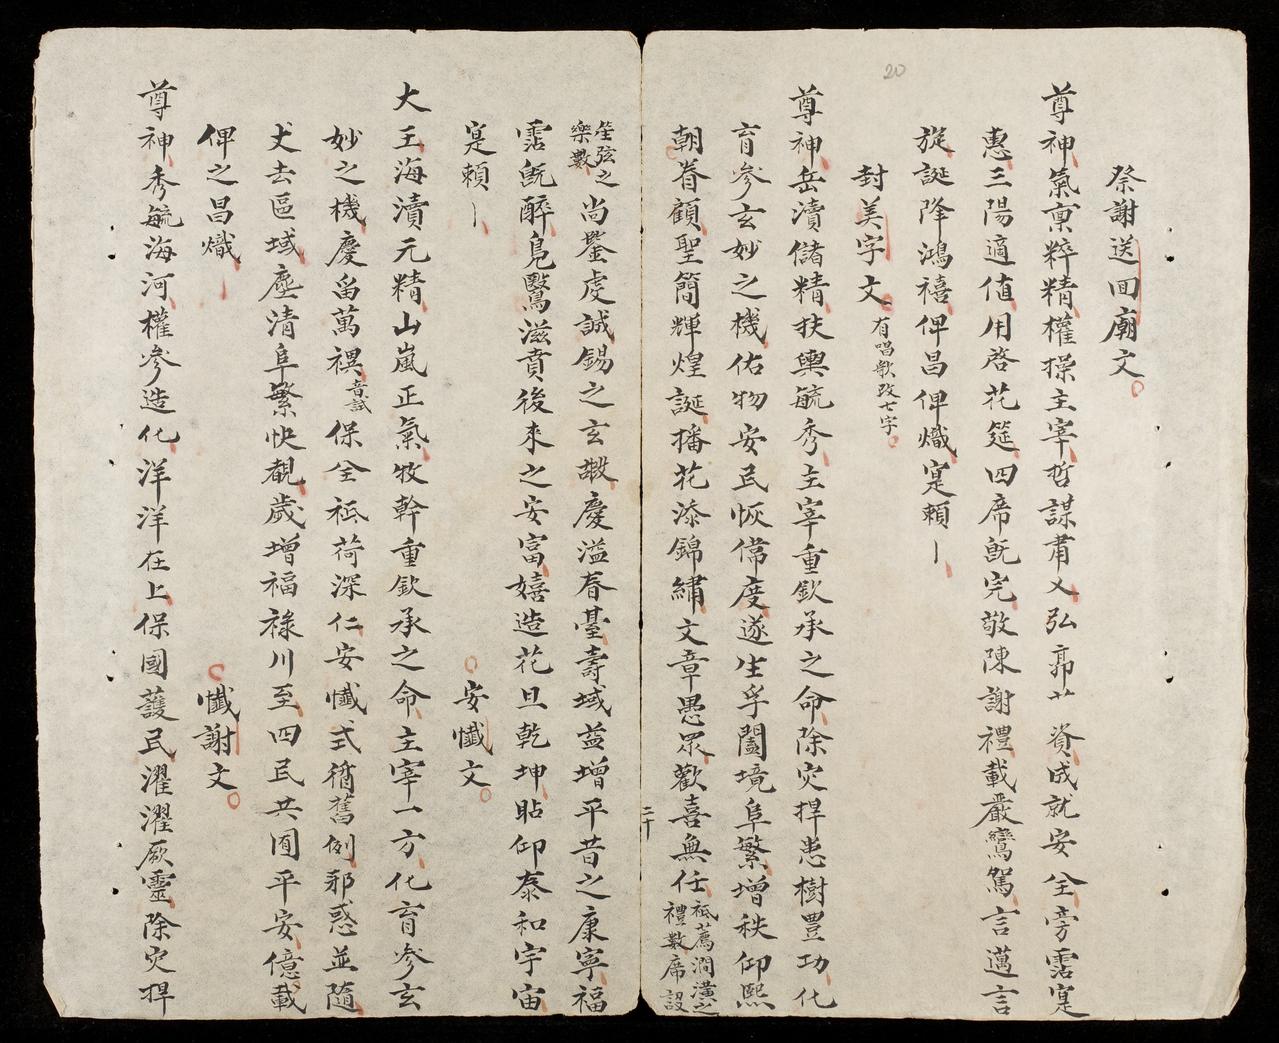 20
祭謝送回廟文
尊神氣稟粹精權操主宰哲謀肅乂弘帡艹資成就安全旁霑寔
惠三陽適值用啓花筵四席既完敬陳謝禮載嚴鸞駕言邁言
旋誕降鴻禧俾昌俾熾寔賴
封美字文有唱歌改七字
尊神岳瀆儲精扶輿毓秀主宰重欽承之命除灾捍患樹豐功化
育參玄妙之機佑物安民恢常度遂生孚闔境阜繁增秩仰熙
朝眷顧聖簡輝煌誕播花添錦繡文章愚衆歡喜無任祗薦澗潢之禮數席設
笙弦之樂數尚鑒虔誠錫之玄嘏慶溢春臺壽域益增平昔之康寧福
霑既醉鳧鷖滋賁後來之安富嬉造花旦乾坤貼仰泰和宇宙
寔賴
安懺文
大王海瀆元精山嵐正氣牧幹重欽承之命主宰一方化育參玄
妙之機慶留萬禩音試保全祗荷深仁安懺式循舊例邪惑並隨
丈去區域塵清阜繁快覩歲增福祿川至四民共囿平安億載
俾之昌熾
懺謝文
尊神秀毓海河權參造化洋洋在上保國護民濯濯厥靈除灾捍
二十